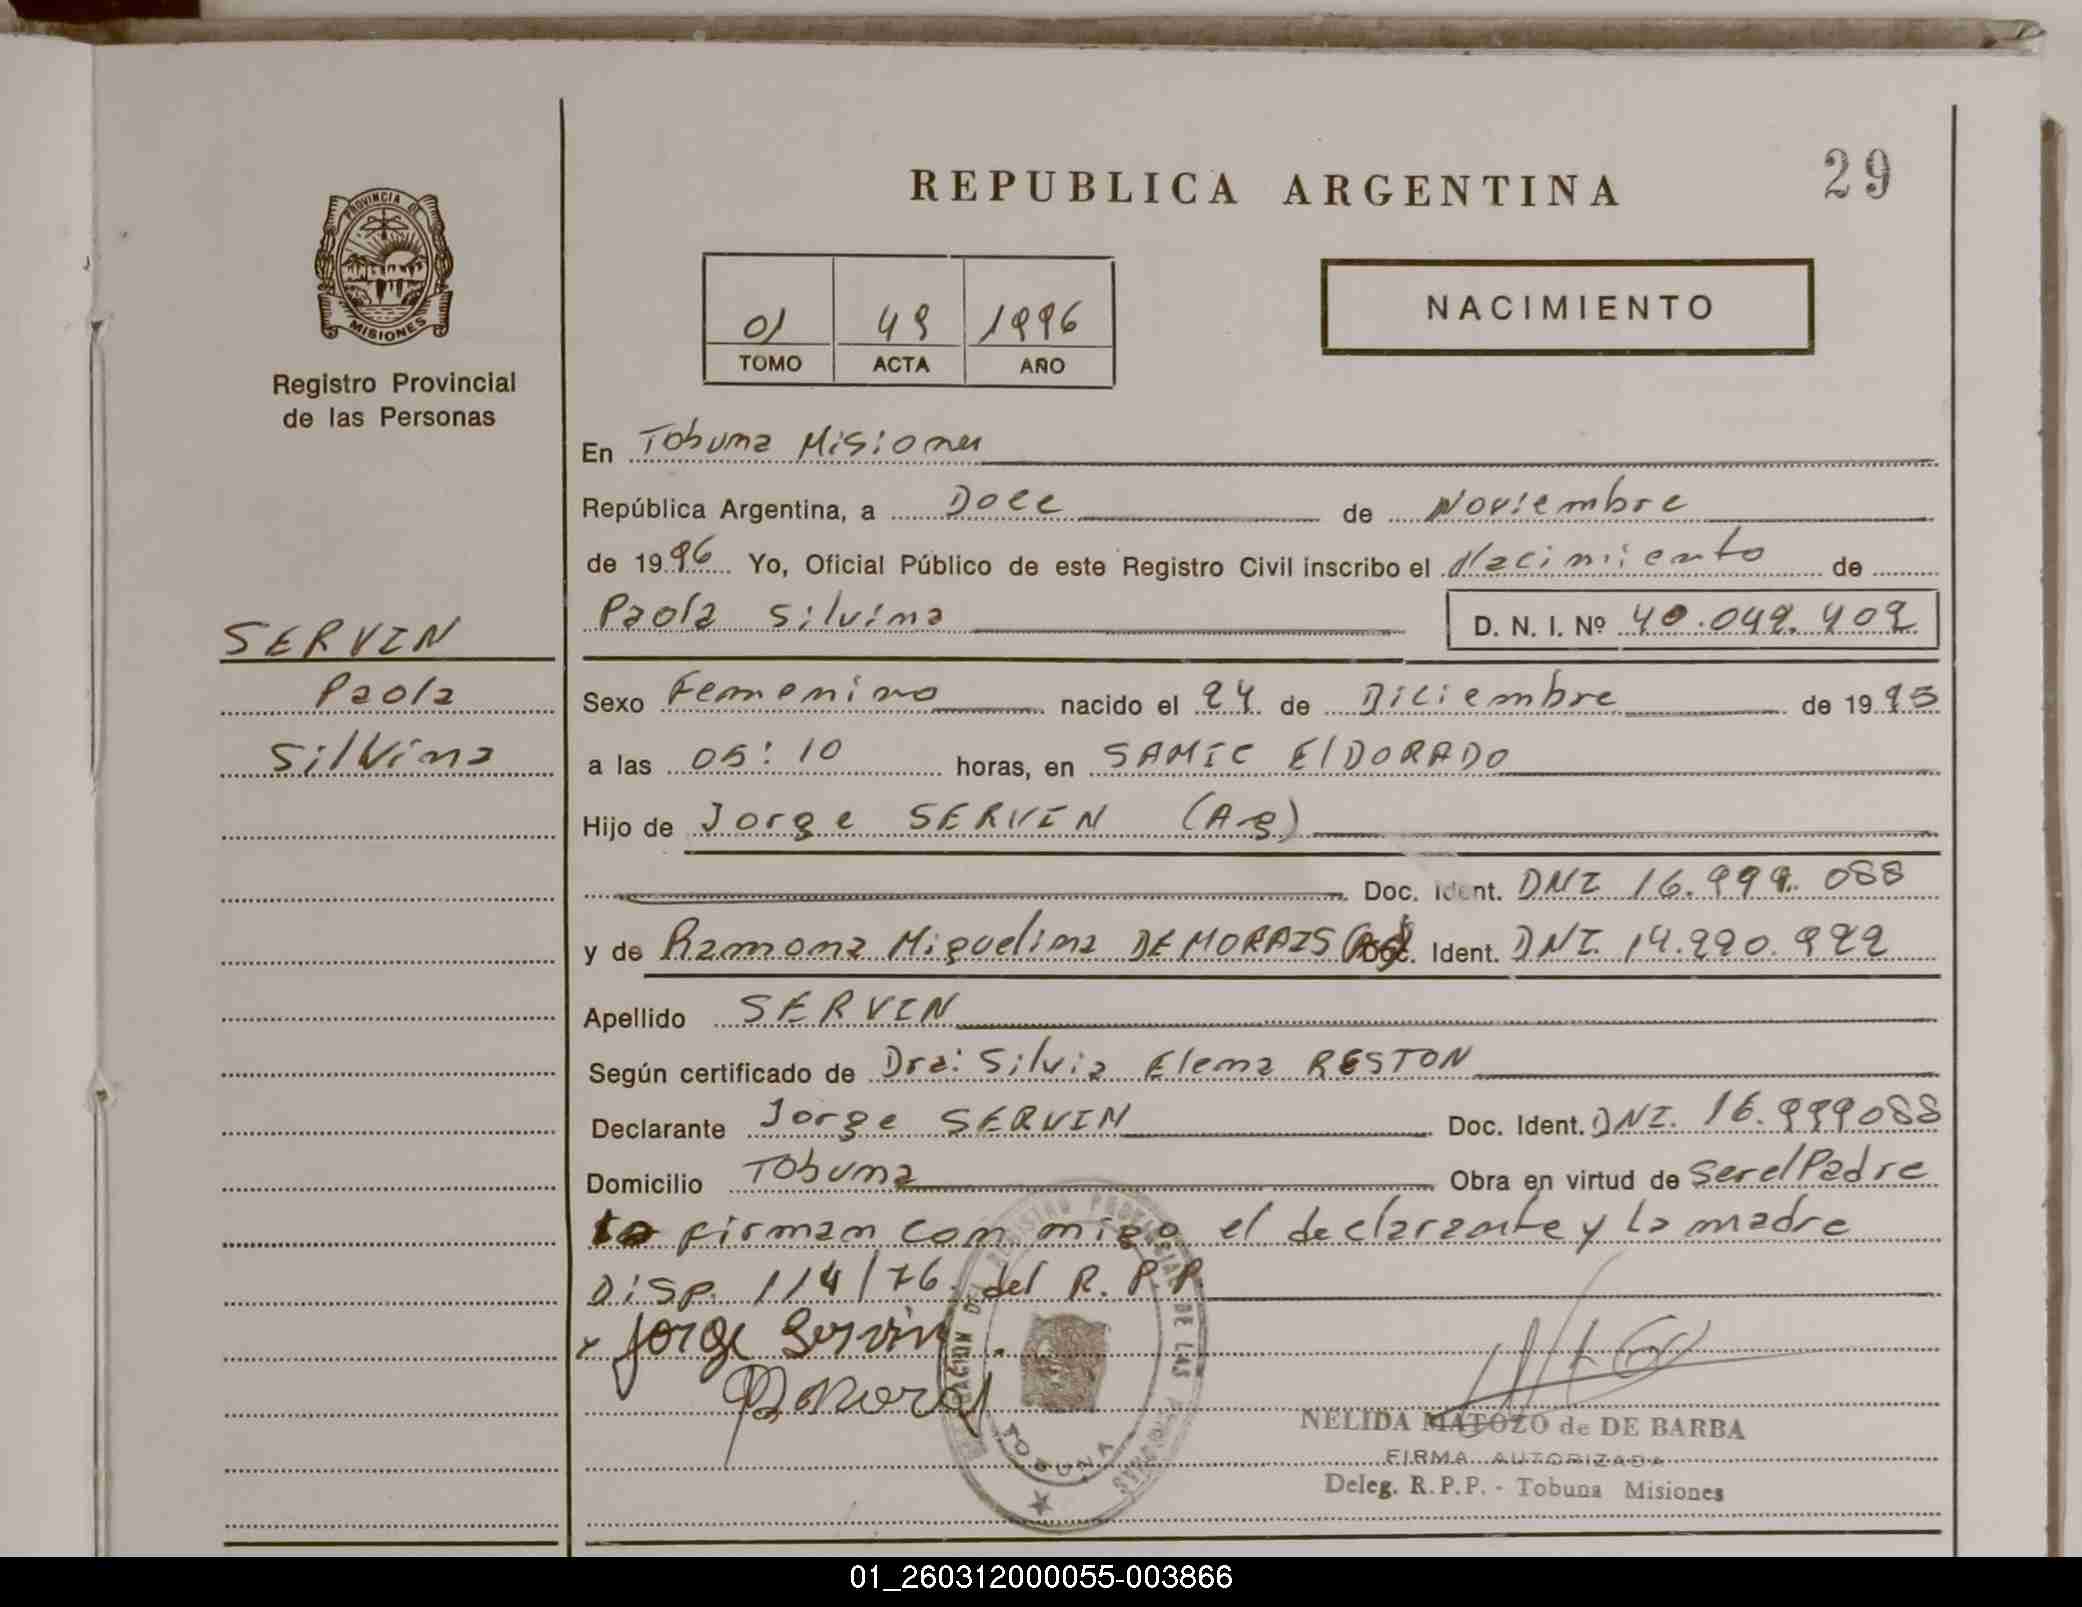 REPUBLICA ARGENTINA
29
PROVINCIA DE
MISIONES
Registro Provincial
de las Personas
01 49 1996
TOMO ACTA AÑO
NACIMIENTO
En Tobuna Misiones
República Argentina, a Doce de Noviembre
de 1996 Yo, Oficial Público de este Registro Civil inscribo el Nacimiento de
Paola Silvina D. N. I. Nº 40.042.402
SERVIN
Paola
Silvina
Sexo Femenino nacido el 24 de Diciembre de 1995
a las 05:10 horas, en SAMIC ElDORADO
Hijo de Jorge SERVIN (Ag)
Doc. Ident. DNI 16.999.088
y de Ramona Miguelina DE MORAIS (Ag) Doc. Ident. DNI. 14.220.922
Apellido SERVIN
Según certificado de Dra: Silvia Elena RESTON
Declarante Jorge SERVIN Doc. Ident. DNI. 16.999088
Domicilio Tobuna Obra en virtud de Ser el Padre
firman con migo el declarante y La madre
Disp. 114/76 del R. P. P.
x Jorge Servin
REGISTRO PROVINCIAL DE LAS PERSONAS
TOBUNA
NELIDA MATOZO de DE BARBA
FIRMA AUTORIZADA
Deleg. R.P.P. - Tobuna Misiones
01_260312000055-003866